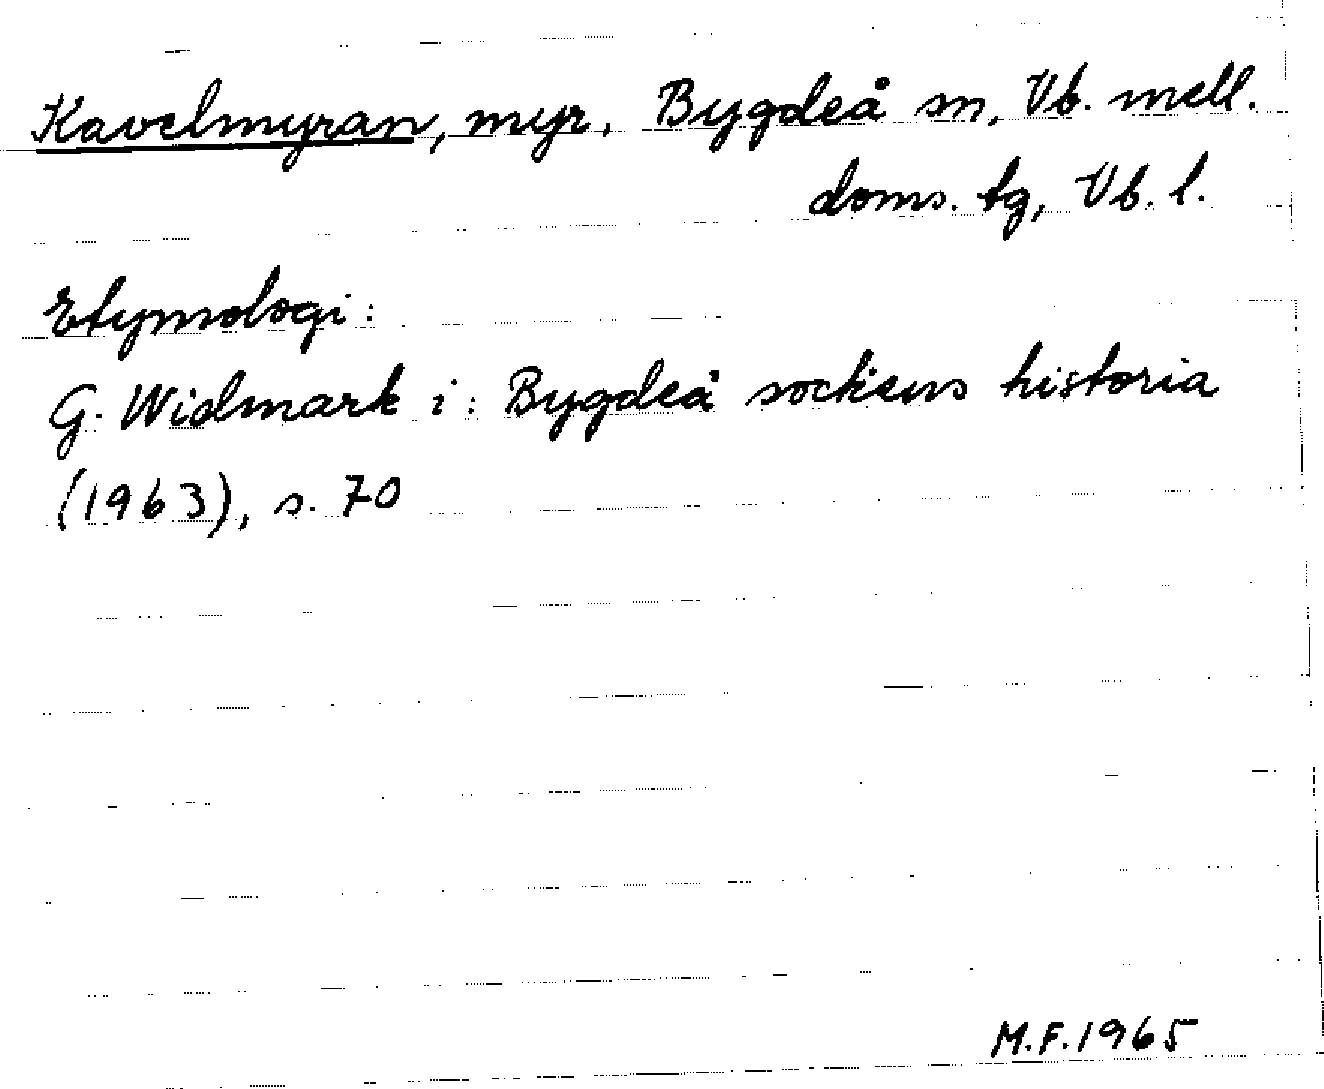 Kavelmyran, myr, Bygdeå sn, Vb. mell.
doms. tg, Vb. l.
Etymologi:
G. Widmark i: Bygdeå sockens historia
(1963), s. 70
M.F. 1965